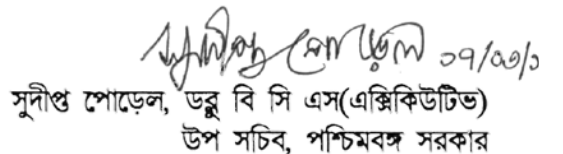 সুদীপ্ত পোড়েল ০৭/০৩/১
সুদীপ্ত পোড়েল, ডব্লু বি সি এস(এক্সিকিউটিভ)
উপ সচিব, পশ্চিমবঙ্গ সরকার